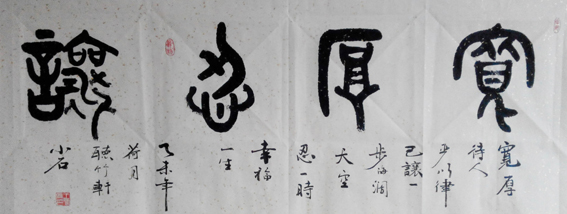 寬厚忍讓
寬厚
待人
尹以律
己讓一
步海闊
天空
忍一時
幸福
一生
乙未年
荷月
聴竹軒
小石